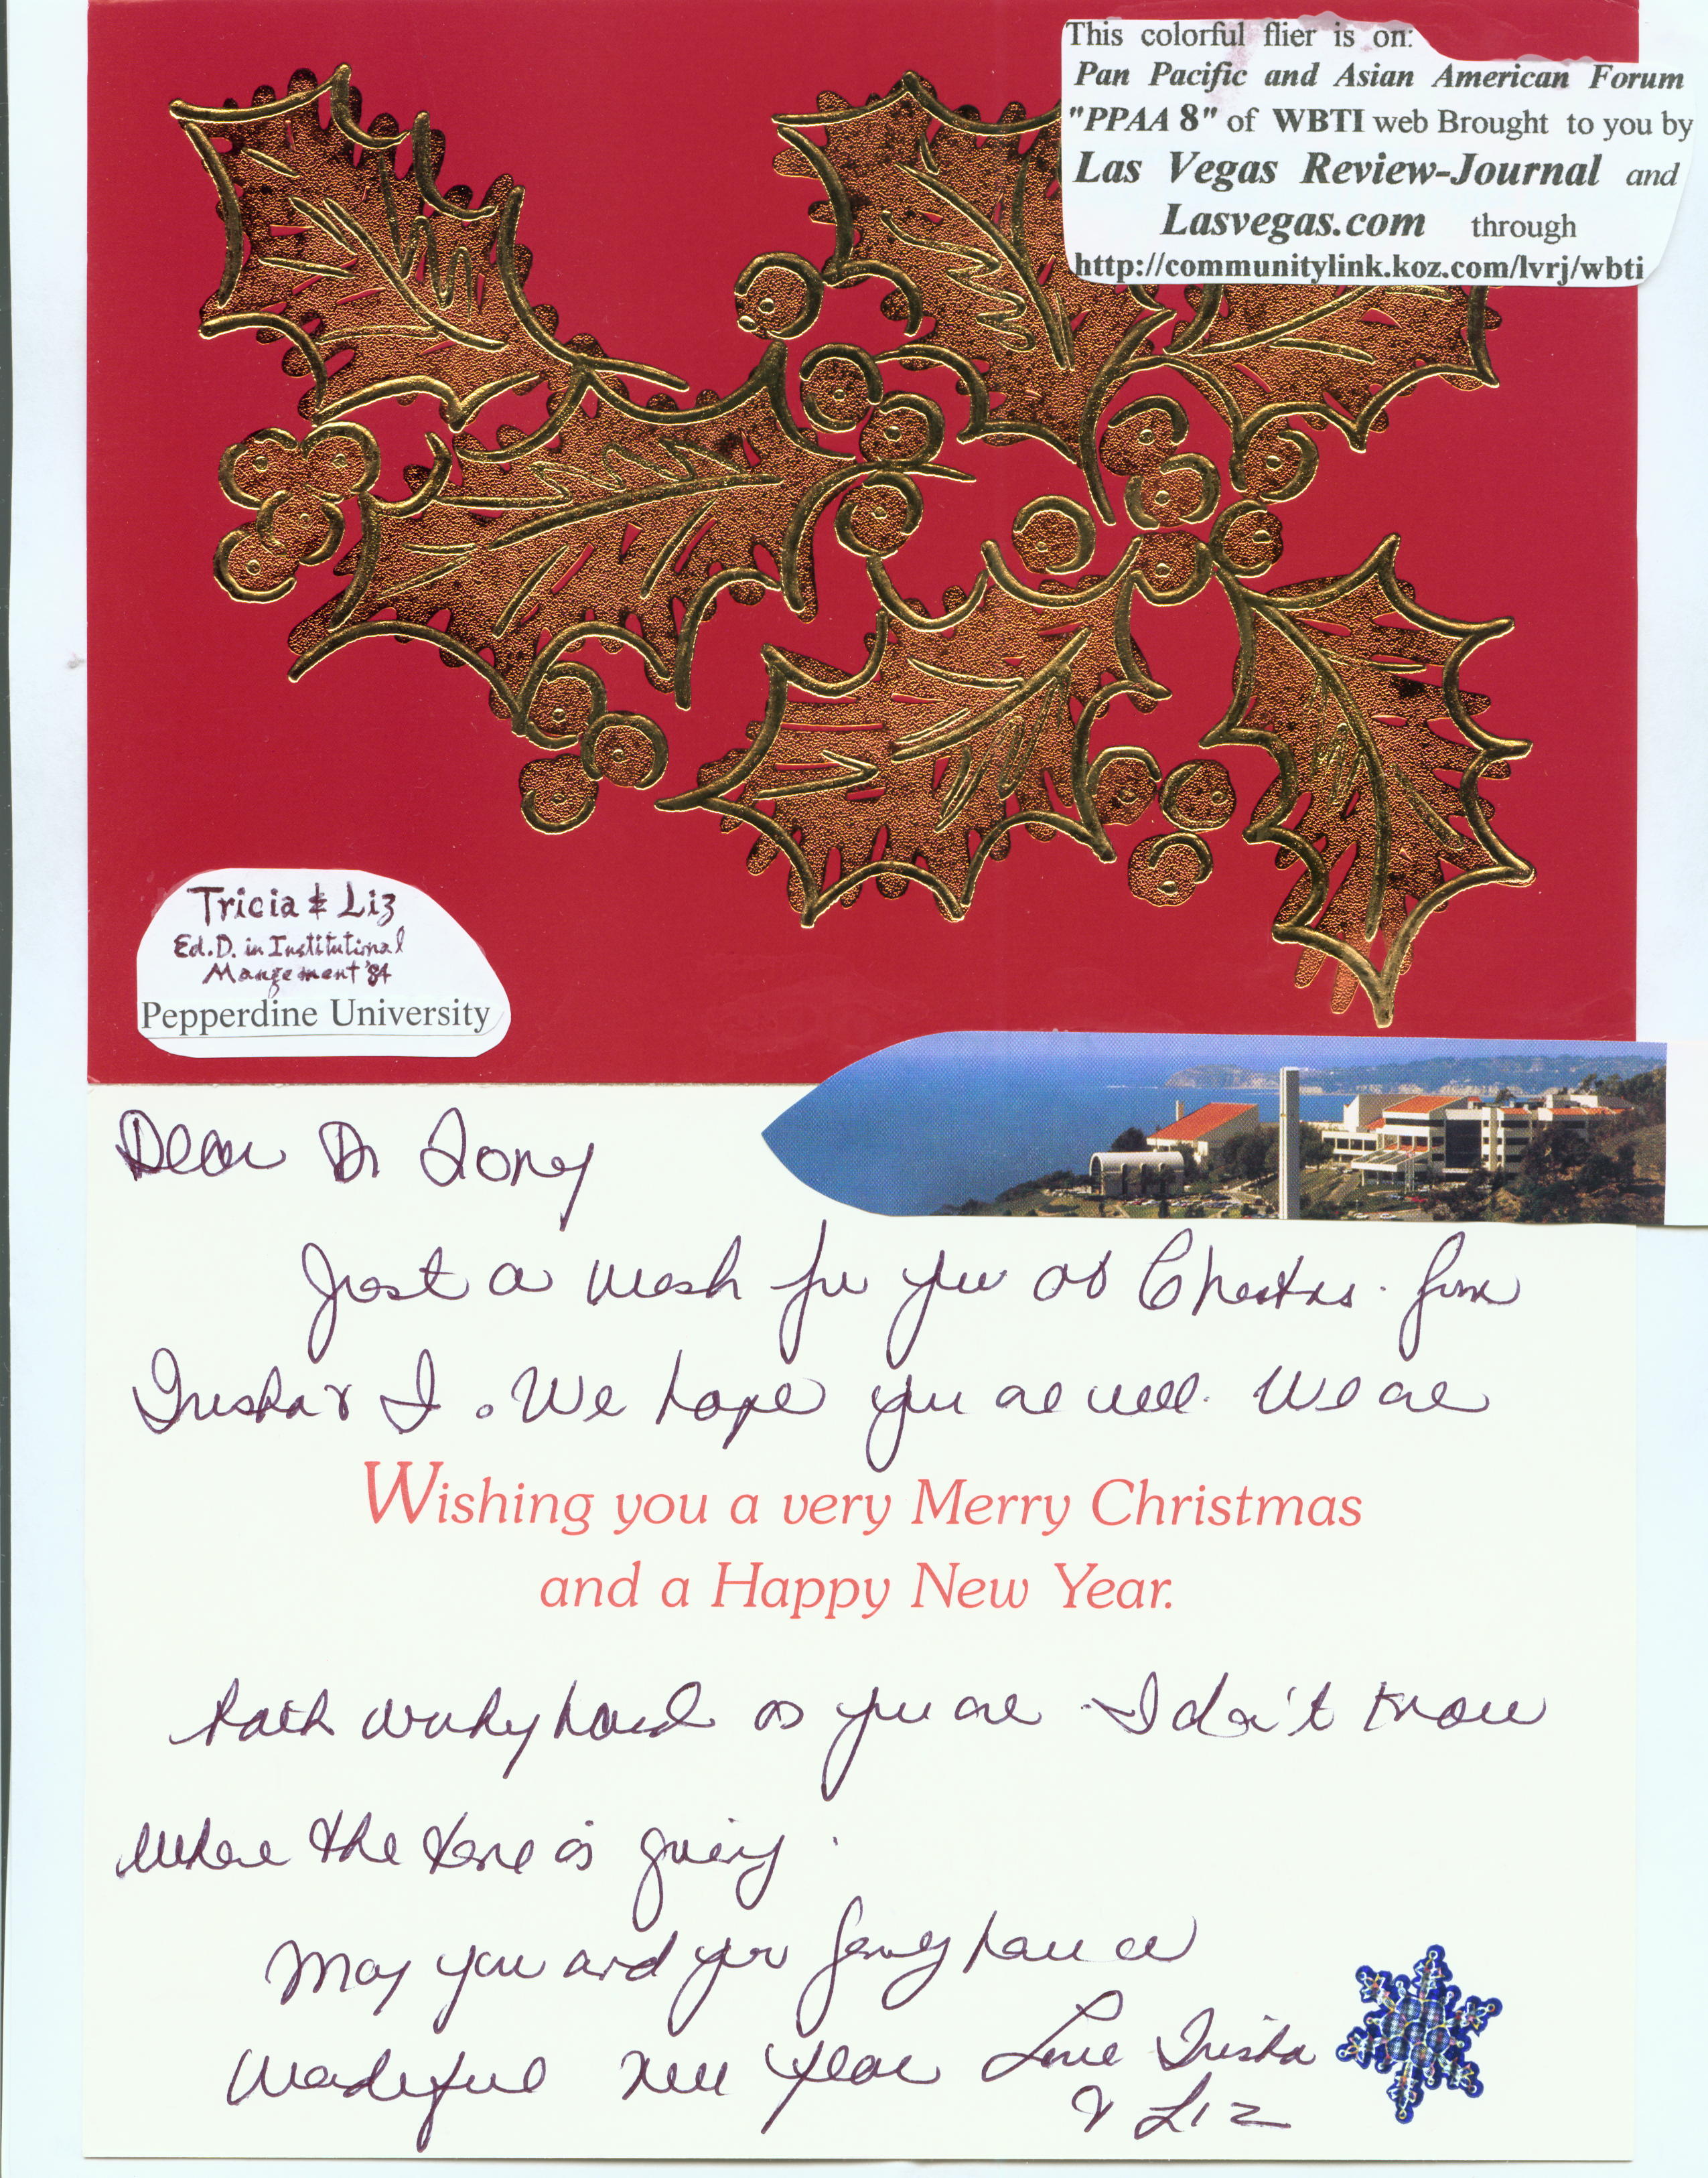 This colorful flier is on:
Pan Pacific and Asian American Forum
"PPAA 8" of WBTI web Brought to you by
Las Vegas Review-Journal and
Lasvegas.com through
http://communitylink.koz.com/lvrj/wbti
Tricia & Liz
Ed.D. in Institutional
Mangement '84
Pepperdine University
Dear Dr
Just a wish for you at from
Trisha & I. We hope you are well. We are
Wishing you a very Merry Christmas
and a Happy New Year.
both working hard as you are. I don't know
where the time is going.
May you and your family have a
Wonderful new year Love Trisha
& Liz